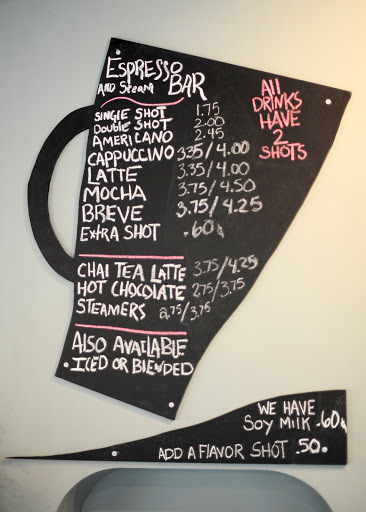 ESPRESSO
AND STEAM BAR
All
DRINKS
HAVE
2
SHOTS
SINGlE SHOT 1.75
DOUBlE SHOT 2.00
AMERICANO 2.45
CAPPUCCINO 3.35/4.00
LATTE 3.35/4.00
MOCHA 3.75/4.50
BREVE 3.75/4.25
EXTRA SHOT .60¢
CHAI TEA LATTE 3.75/4.25
HOT CHOCOLATE 2.75/3.75
STEAMERS 2.75/3.75
ALSO AVAILABLE
• ICED OR BLENDED
WE HAVE
SOY MIlK .60¢
ADD A FLAVOR SHOT .50